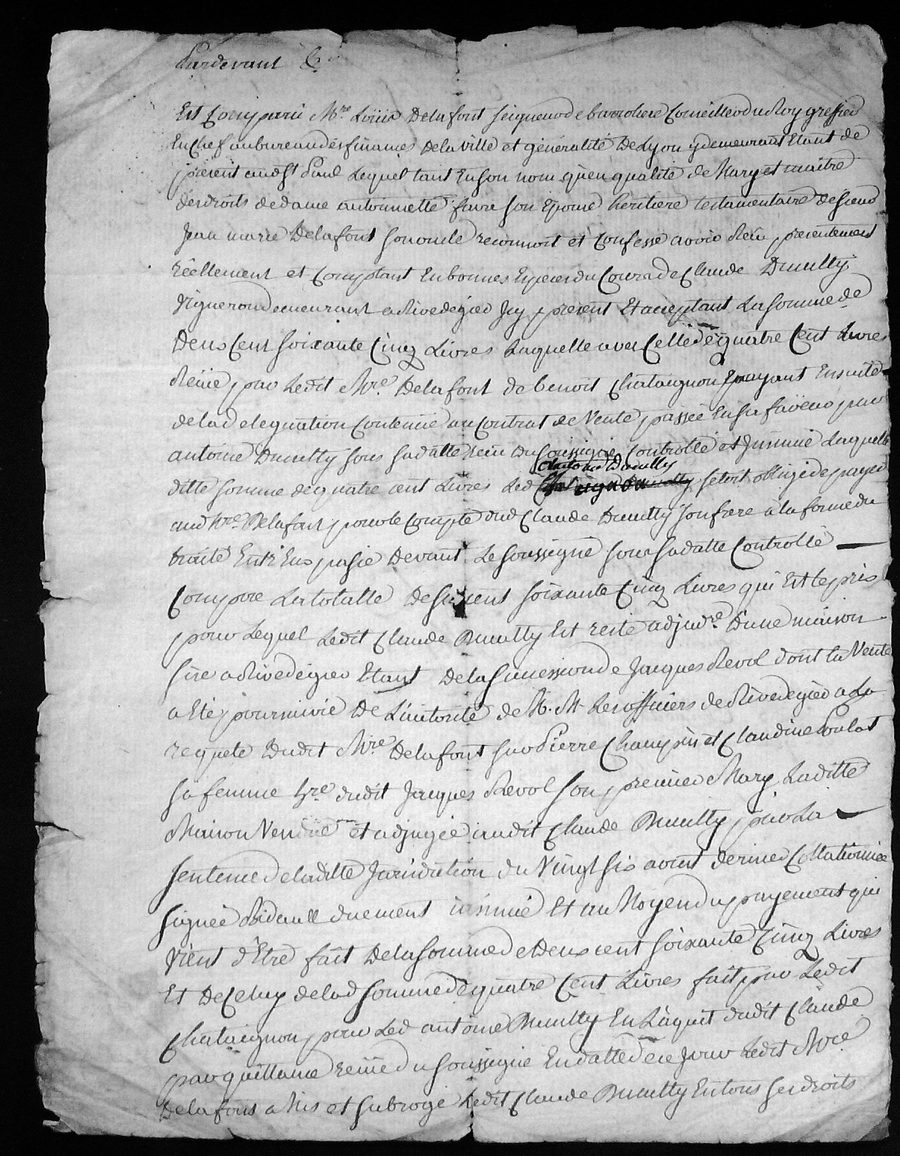 Pardevant &c.
Est Comparu Mre. Loüis Delafont seigneur de barroliere Conseiller du Roy greffier
En Chef au bureau des finances de la ville et généralité de Lyon y demeurant Etant de
présent aud St Paul Lequel tant En son nom qu'en qualité de Mary et maitre
des droits de dame antoinette favre son Epouse heritiere testamentaire de sieur
Jean marie Delafont son oncle reconnoit et Confesse avoir Reçu présentement
réellement et Comptant En bonnes Especes du Cours de Claude Dmeully
Vigneron demeurant a Rivedegier Icy présent Et acceptant La somme de
Deux Cent soixante Cinq Livres Laquelle avec Celle de quatre Cent Livres
Reçüe par Ledit Mre. Delafont de benoit Chataignon Epayant En suitte
de la delegation Contenüe au Contrat de Vente passée En sa faveur par
antoine Dmeully sous sa datte reçu du soussigné Controllé et Insinué Laquelle
ditte somme de quatre cent Livres Led antoine Dmeully s'etoit obligé de payer
aud Mre. Delafont pour le Compte dud Claude Dmeully son frere a la forme du
traité Entr'Eux passé Devant Le soussigné sous sa datte Controllé
Compose La totalle de six cent soixante Cinq Livres qui Est le prix
pour Lequel Ledit Claude Dmeully Est resté adjudre. D'une maison
sise a Rivedegier Etant de la succession de Jacques Revol dont la Vente
a Eté poursuivie De L'autorité de M. M. Les officiers de Rivedegier a La
requete Dudit Mre. Delafont sur Pierre Champin et Claudine Poulat
sa femme hre. dudit Jacques Revol son premier Mary Laditte
Maison Vendüe et adjugée audit Claude Dmeully par La
sentence de laditte Jurisdiction du Vingt six aoust dernier Collationnée
signée Bidault duement insinué Et au Moyen du payement qui
Vient d'Etre fait De la somme de Deux cent soixante Cinq Livres
Et De Celuy de lad somme de quatre Cent Livres fait par Ledit
Chataignon pour Led antoine Dmeully En L'aquit dudit Claude
par quittance reçüe du soussigné En datte de ce Jour Ledit Mre.
Delafont a Mis et subrogé Ledit Claude Dmeully En tous ses droits